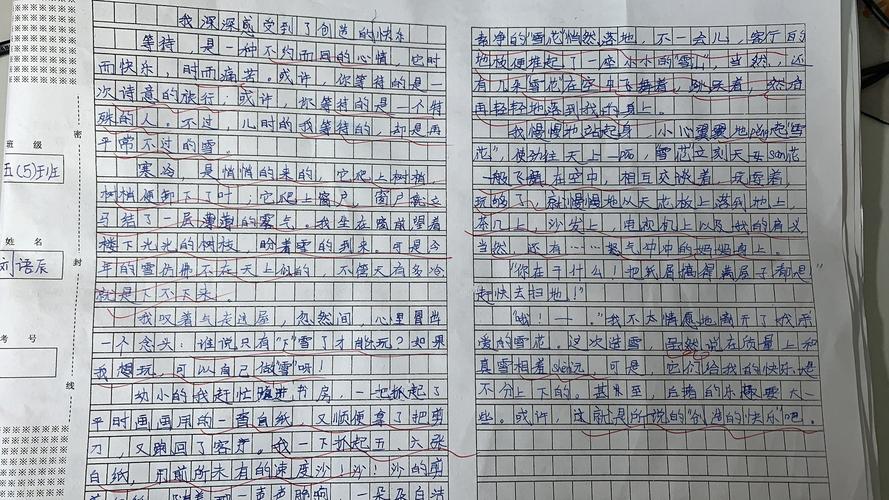 班级
五(5)班
姓名
刘语辰
考号
密
封
线
我深深感受到了创造的快乐
等待，是一种不约而同的心情，它时
而快乐，时而痛苦。或许，你等待的是一
次诗意的旅行；或许，你等待的是一个特
殊的人。不过，儿时的我等待的，却是再
平常不过的雪。
寒冷，是悄悄的来的，它爬上树梢，
树梢便卸下了叶；它爬上窗户，窗户立
马结了一层薄薄的雾气。我坐在窗前望着
楼下光光的树枝，盼着雪的到来，可是今
年的雪仿佛不在天上似的，不管天有多冷
就是下不下来。
我叹着气走进屋，忽然间，心里冒出
一个念头：谁说只有"下"雪了才能玩？如果
我想玩，可以自己做"雪"呀！
幼小的我赶忙进书房，一把抓起了
平时画画用的一沓白纸，又顺便拿了把剪
刀，又跑回了客厅。我一下抓起五、六张
白纸，用前所未有的速度沙！沙！沙的剪
一声声脆响，一朵朵白洁
素净的"雪花"悄然落地，不一会儿，客厅的
地板便堆起了一座小小的"雪"山，当然，还
有几朵"雪花"在空中飞舞着，跳跃着，然后
再轻轻地落到我的身上。
我慢慢地站起身，小心翼翼地peng起"雪
花"，使劲往天上一po，"雪花"立刻天女san花
一般飞舞在空中，相互交谈着，玩耍着，
玩够了，就慢慢地从天花板上落到地上，
茶几上，沙发上，电视机上以及我的肩
当然，还有……怒气冲冲的妈妈身上。
"你在干什么！把纸屑搞得满屋子都是"
赶快去扫地！"
"哦！——。"我不太情愿地离开了我
爱的雪花。这次造雪，虽然说在质量上和
真雪相差shen远，可是，它们给我的快乐是
不分上下的。甚至，自造的乐趣要大一
些。或许，这就是所说的"创造的快乐"吧。